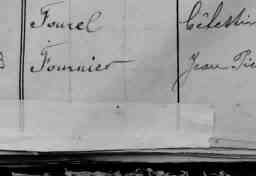 Fourel Célestin
Fournier Jean Pie